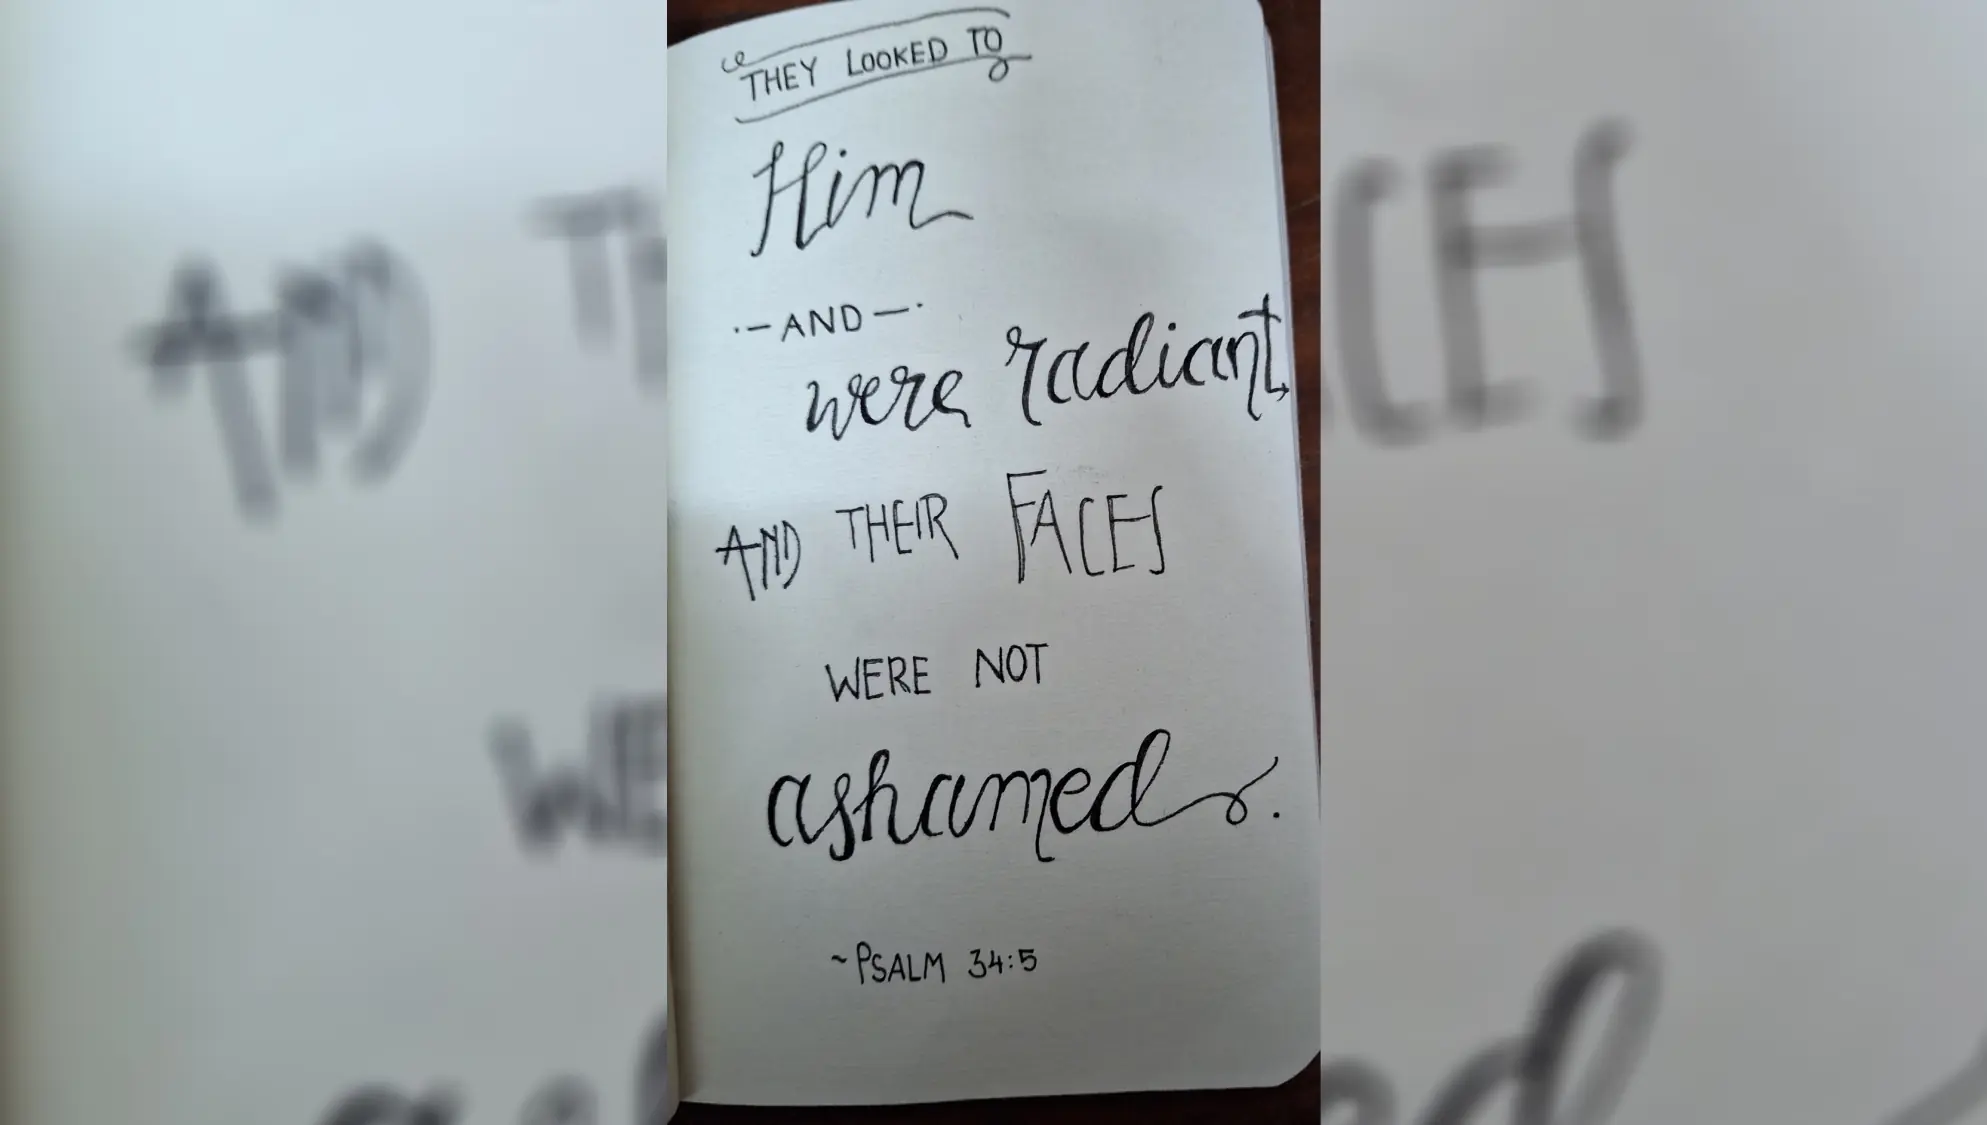 THEY LOOKED TO
Him
.-AND-.
were radiant,
AND THEIR FACES
WERE NOT
ashamed.
~PSALM 34:5